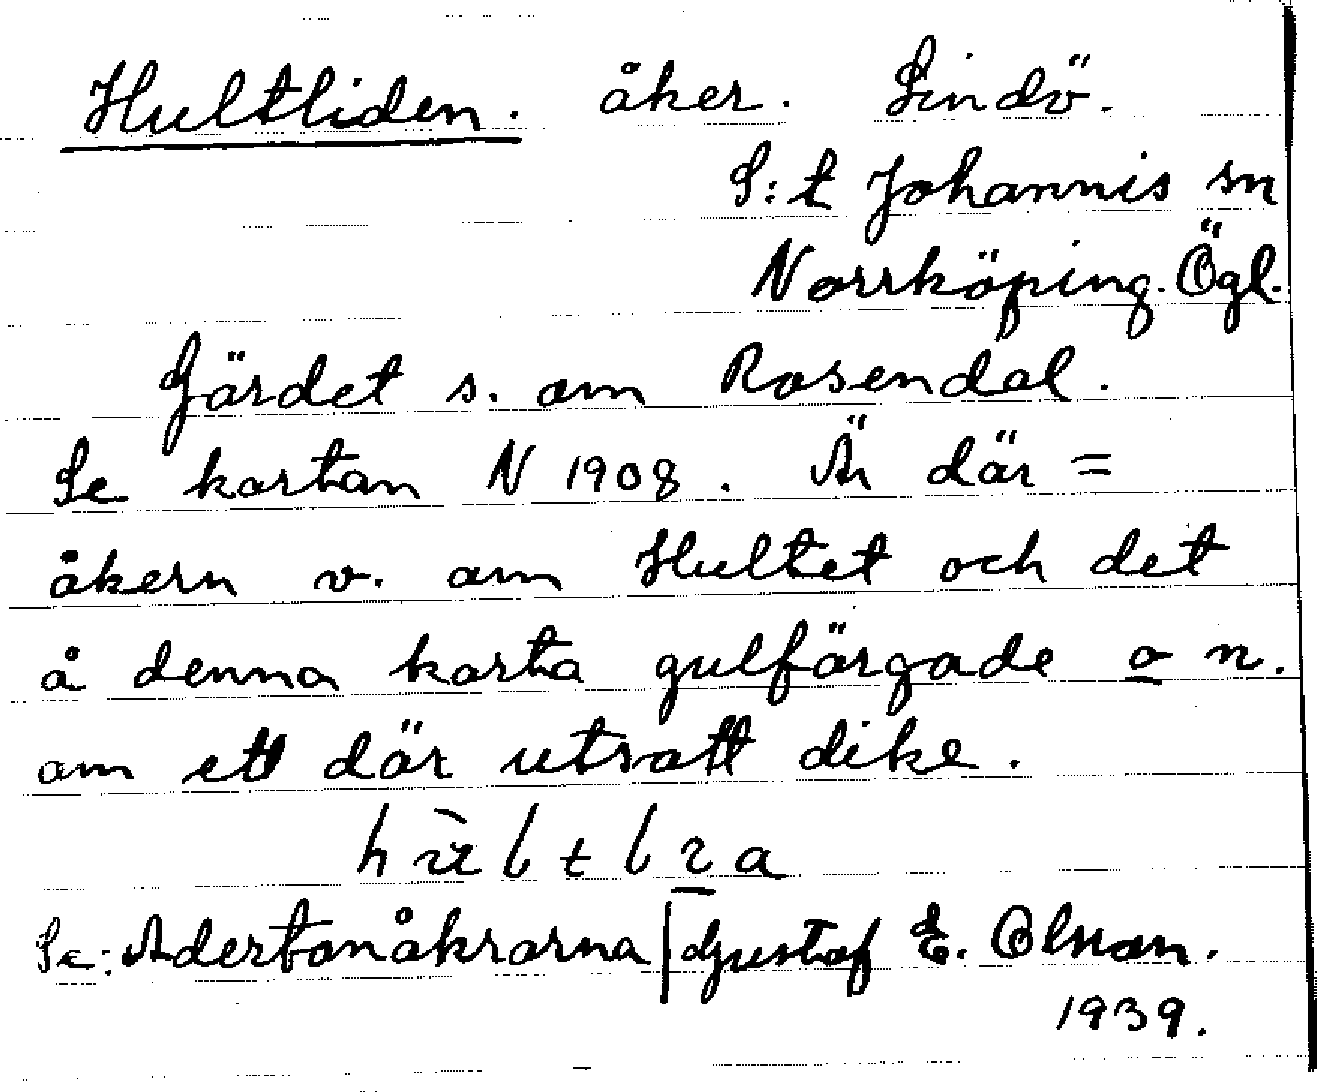 Hultliden. åker. Lindö.
S:t Johannis sn
Norrköping. Ögl.
Gärdet s. om Rosendal.
Se kartan N 1908. Är där =
åkern v. om Hultet och det
å denna karta gulfärgade o n.
om ett där utsatt dike.
Se: Adertonåkrarna | Gustaf E. Olson.
1939.